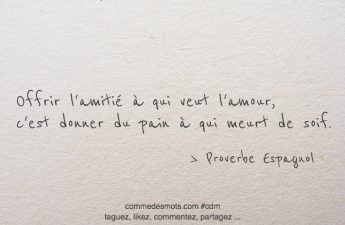 Offrir l'amitié à qui veut l'amour,
c'est donner du pain à qui meurt de soif.
> Proverbe Espagnol
commedesmots.com #cdm
taguez, likez, commentez, partagez ...